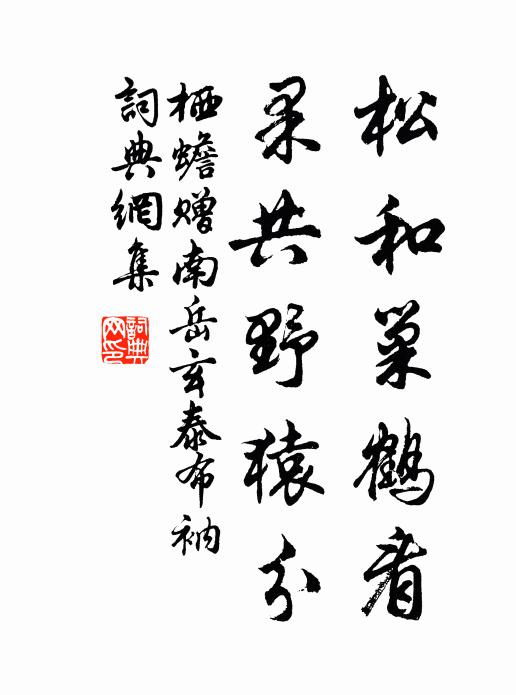 松和巢鶴看
果共野猿分
栖蟾贈南岳玄泰布衲
詞典網集
詞典
网印